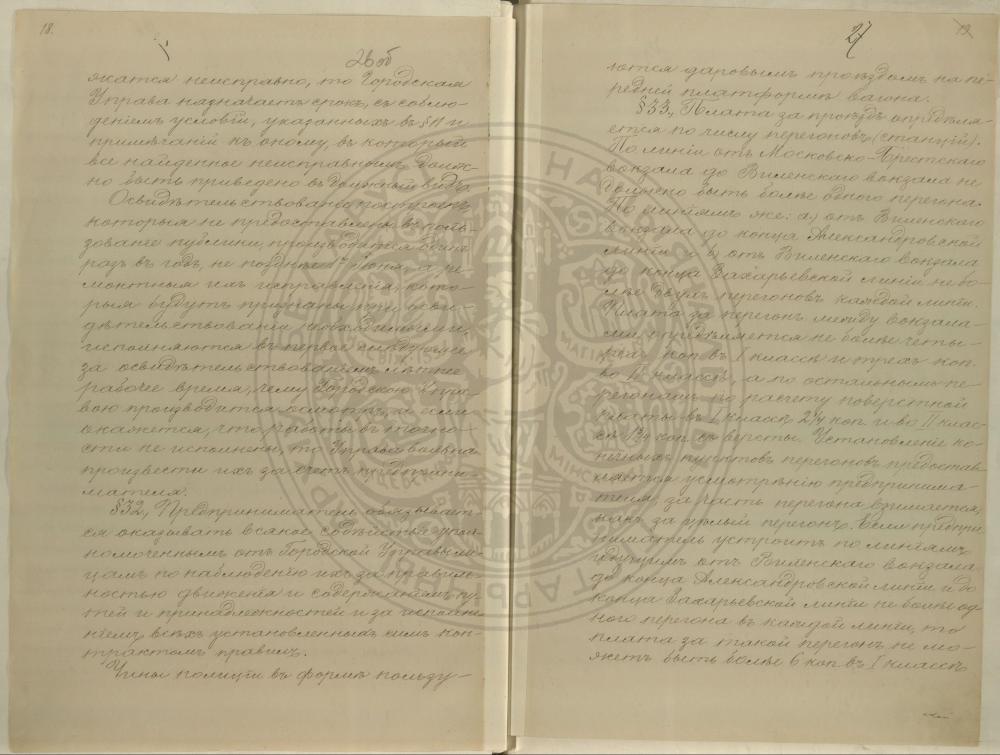 18.
26 об
жатся неисправно, то Городская
Управа назначает срок, съ соблю-
деніемъ условій, указанныхъ въ § 11 и
примѣчаній къ оному, въ который
все найденное неисправнымъ долж-
но быть приведено въ должный видъ.
Освидѣтельствованіе
которыя не предоставлены въ поль-
зованіе публики, производится одинъ
разъ въ годъ, не позднѣе 1го Іюня, а ре-
монтныя ихъ исправленія, кото-
рыя будутъ признаны при осви-
дѣтельствованіи необходимыми,
исполняются въ первое слѣдующее
за освидѣтельствованіемъ лѣтнее
рабочее время, чему Городскою Упра-
вою производится осмотръ, и если
окажется, что работы въ точно-
сти не исполнены, то Управа вольна
произвести ихъ за счетъ предприни-
мателя.
§32, Предприниматель обязывает-
ся оказывать всякое содѣйствіе упол-
номоченнымъ отъ Городской Управы ли-
цамъ по наблюденію ихъ за правиль-
ностью движенія и содержаніемъ пу-
тей и принадлежностей и за исполне-
ніемъ всѣхъ установленныхъ симъ кон-
трактомъ правилъ.
Чины полиціи въ формѣ пользу-
19.
27
ются даровымъ проѣздомъ на пе-
редней платформѣ вагона.
§33, Плата за проѣздъ опредѣля-
ется по числу перегоновъ (станцій).
По линіи отъ Московско-Брестскаго
вокзала до Виленскаго вокзала не
должно быть болѣе одного перегона.
По линіямъ же: а) отъ Виленскаго
вокзала до конца Александровской
линіи и б) отъ Виленскаго вокзала
до конца Захарьевской линіи не бо-
лѣе двухъ перегоновъ каждой линіи.
Плата за перегонъ между вокзала-
ми опредѣляется не болѣе четы-
рехъ коп. въ I классѣ и трехъ коп.
во II классѣ, а по остальнымъ пе-
регонамъ по расчету поверстной
платы въ I классѣ 2¼ коп. и во II клас-
сѣ 1¾ коп. съ версты. Установленіе ко-
нечныхъ пунктовъ перегоновъ предостав-
ляется усмотрѣнію предпринима-
теля, за часть перегона взимается,
какъ за цѣлый перегонъ. Если предпри-
ниматель устроитъ по линіямъ
идущимъ отъ Виленскаго вокзала
до конца Александровской линіи и до
конца Захарьевской линіи не болѣе од-
ного перегона въ каждой линіи, то
плата за такой перегонъ не мо-
жетъ быть болѣе 6 коп. въ I классѣ